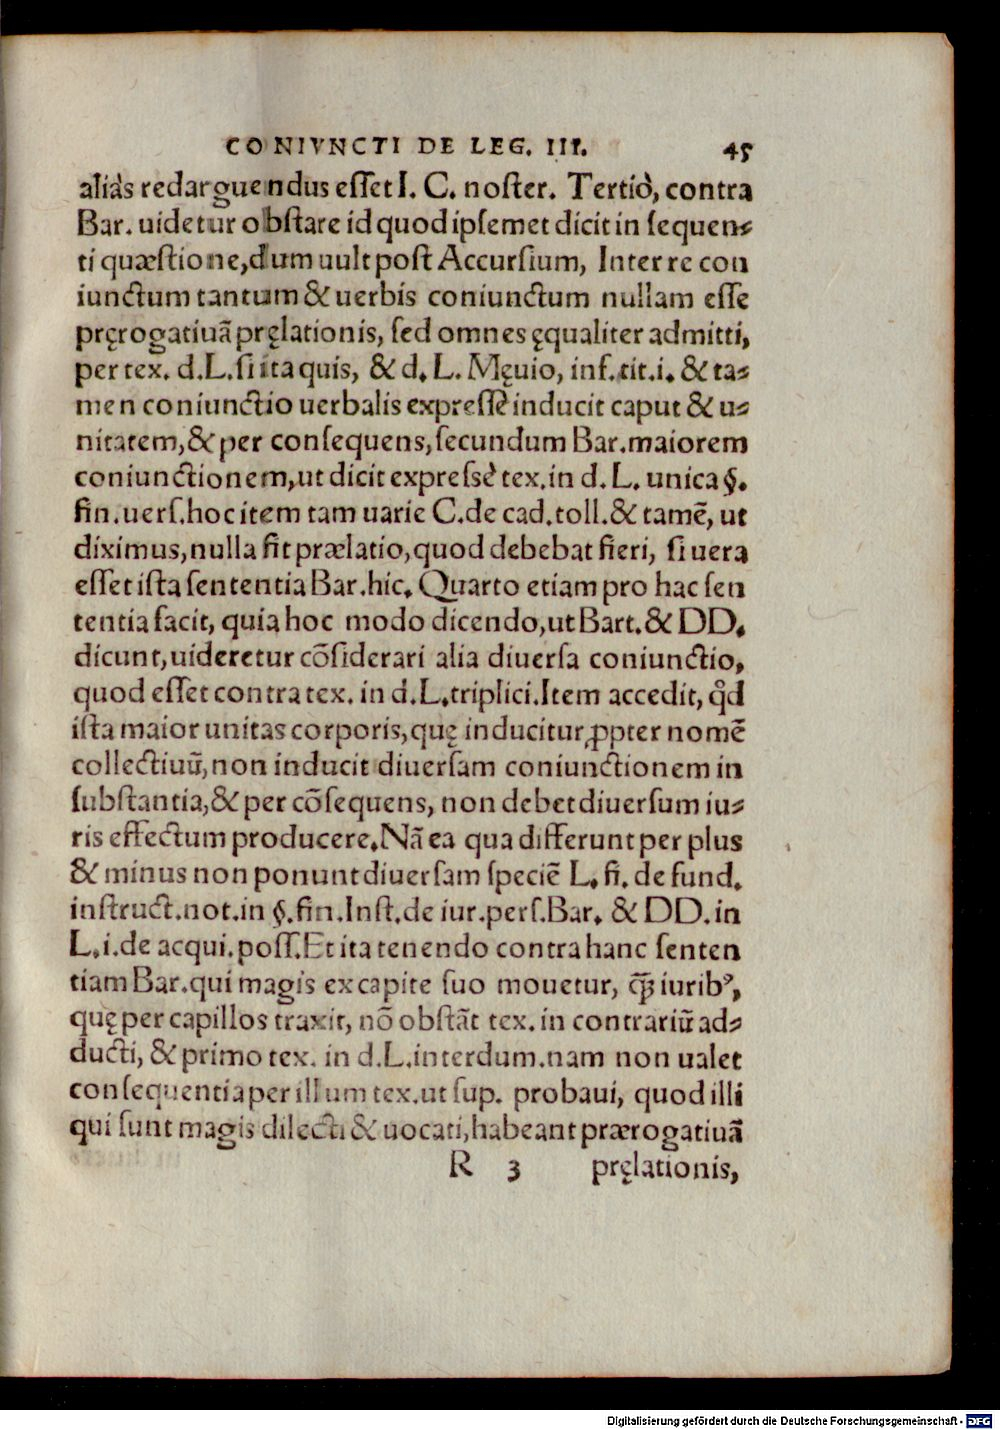 CONIVNCTI DE LEG. III. 45
aliàs redarguendus esſet I. C. noſter. Tertiò, contra
Bar. uidetur obſtare id quod ipſemet dicit in ſequen⸗
ti quæſtione, dum uult poſt Accurſium, Inter re con
iunctum tantum & uerbis coniunctum nullam eſſe
pręrogatiuã pręlationis, ſed omnes ęqualiter admitti,
per tex. d. L. ſi ita quis, & d. L. Męuio, inf. tit. i. & ta⸗
men coniunctio uerbalis expreſſè inducit caput & u⸗
nitatem, & per conſequens, ſecundum Bar. maiorem
coniunctionem, ut dicit expreſsè tex. in d. L. unica §.
fin. uerſ. hoc item tam uarie C. de cad. toll. & tamẽ, ut
diximus, nulla fit prælatio, quod debebat fieri, ſi uera
eſſet iſta ſententia Bar. hic. Quarto etiam pro hac ſen
tentia facit, quia hoc modo dicendo, ut Bart. & DD.
dicunt, uideretur cõſiderari alia diuerſa coniunctio,
quod eſſet contra tex. in d. L. triplici. Item accedit, qd̃
iſta maior unitas corporis, quę inducitur ꝓpter nomẽ
collectiuũ, non inducit diuerſam coniunctionem in
ſubſtantia, & per cõſequens, non debet diuerſum iu⸗
ris effectum producere. Nã ea qua differunt per plus
& minus non ponunt diuerſam ſpeciẽ L. fi. de fund.
inſtruct. not. in §. fin. Inſt. de iur. perſ. Bar. & DD. in
L. i. de acqui. poſſ. Et ita tenendo contra hanc ſenten
tiam Bar. qui magis ex capite ſuo mouetur, q̃ꝫ iuribꝰ,
quę per capillos traxit, nõ obſtãt tex. in contrariũ ad⸗
ducti, & primo tex. in d. L. interdum. nam non ualet
conſequentia per illum tex. ut ſup. probaui, quod illi
qui ſunt magis dilecti & uocati, habeant prærogatiuã
R 3 pręlationis,
Digitalisierung gefördert durch die Deutsche Forschungsgemeinschaft - DFG